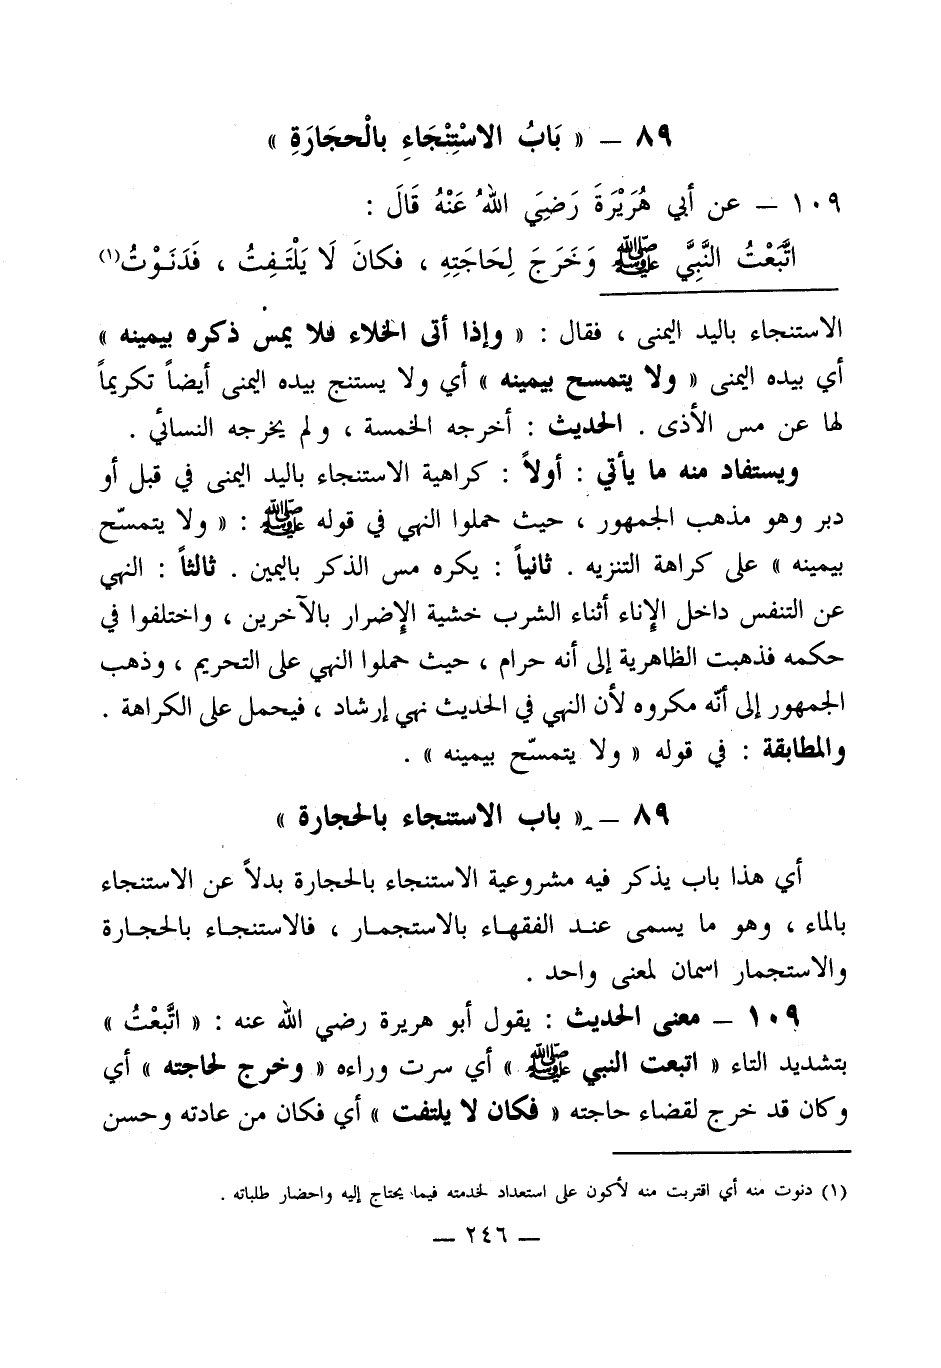 ٨٩ – « بَابُ الاسْتِنْجَاءِ بالْحجَارَةِ »
١٠٩ – عن أبي هُرَيْرَةَ رَضِيَ اللهُ عَنْهُ قَالَ :
اتَّبَعْتُ النَّبِيَّ ﷺ وَخَرَجَ لِحَاجَتِهِ ، فكانَ لَا يَلْتَفِتُ ، فَدَنَوْتُ(١)
الاستنجاء باليد اليمنى ، فقال : « وإذا أتى الخلاء فلا يمس ذكره بيمينه »
أي بيده اليمنى « ولا يتمسح بيمينه » أي ولا يستنج بيده اليمنى أيضاً تكريماً
لها عن مس الأذى . الحديث : أخرجه الخمسة ، ولم يخرجه النسائي .
ويستفاد منه ما يأتي : أولاً : كراهية الاستنجاء باليد اليمنى في قبل أو
دبر وهو مذهب الجمهور ، حيث حملوا النهي في قوله ﷺ : « ولا يتمسّح
بيمينه » على كراهة التنزيه . ثانياً : يكره مس الذكر باليمين . ثالثاً : النهي
عن التنفس داخل الإناء أثناء الشرب خشية الإضرار بالآخرين ، واختلفوا في
حكمه فذهبت الظاهرية إلى أنه حرام ، حيث حملوا النهي على التحريم ، وذهب
الجمهور إلى أنّه مكروه لأن النهي في الحديث نهي إرشاد ، فيحمل على الكراهة .
والمطابقة : في قوله « ولا يتمسّح بيمينه » .
٨٩ – « باب الاستنجاء بالحجارة »
أي هذا باب يذكر فيه مشروعية الاستنجاء بالحجارة بدلاً عن الاستنجاء
بالماء ، وهو ما يسمى عند الفقهاء بالاستجمار ، فالاستنجاء بالحجارة
والاستجمار اسمان لمعنى واحد .
١٠٩ – معنى الحديث : يقول أبو هريرة رضي الله عنه : « اتَّبعْتُ »
بتشديد التاء « اتبعت النبي ﷺ » أي سرت وراءه « وخرج لحاجته » أي
وكان قد خرج لقضاء حاجته « فكان لا يلتفت » أي فكان من عادته وحسن
(١) دنوت منه أي اقتربت منه لأكون على استعداد لخدمته فيما يحتاج إليه واحضار طلباته .
– ٢٤٦ –